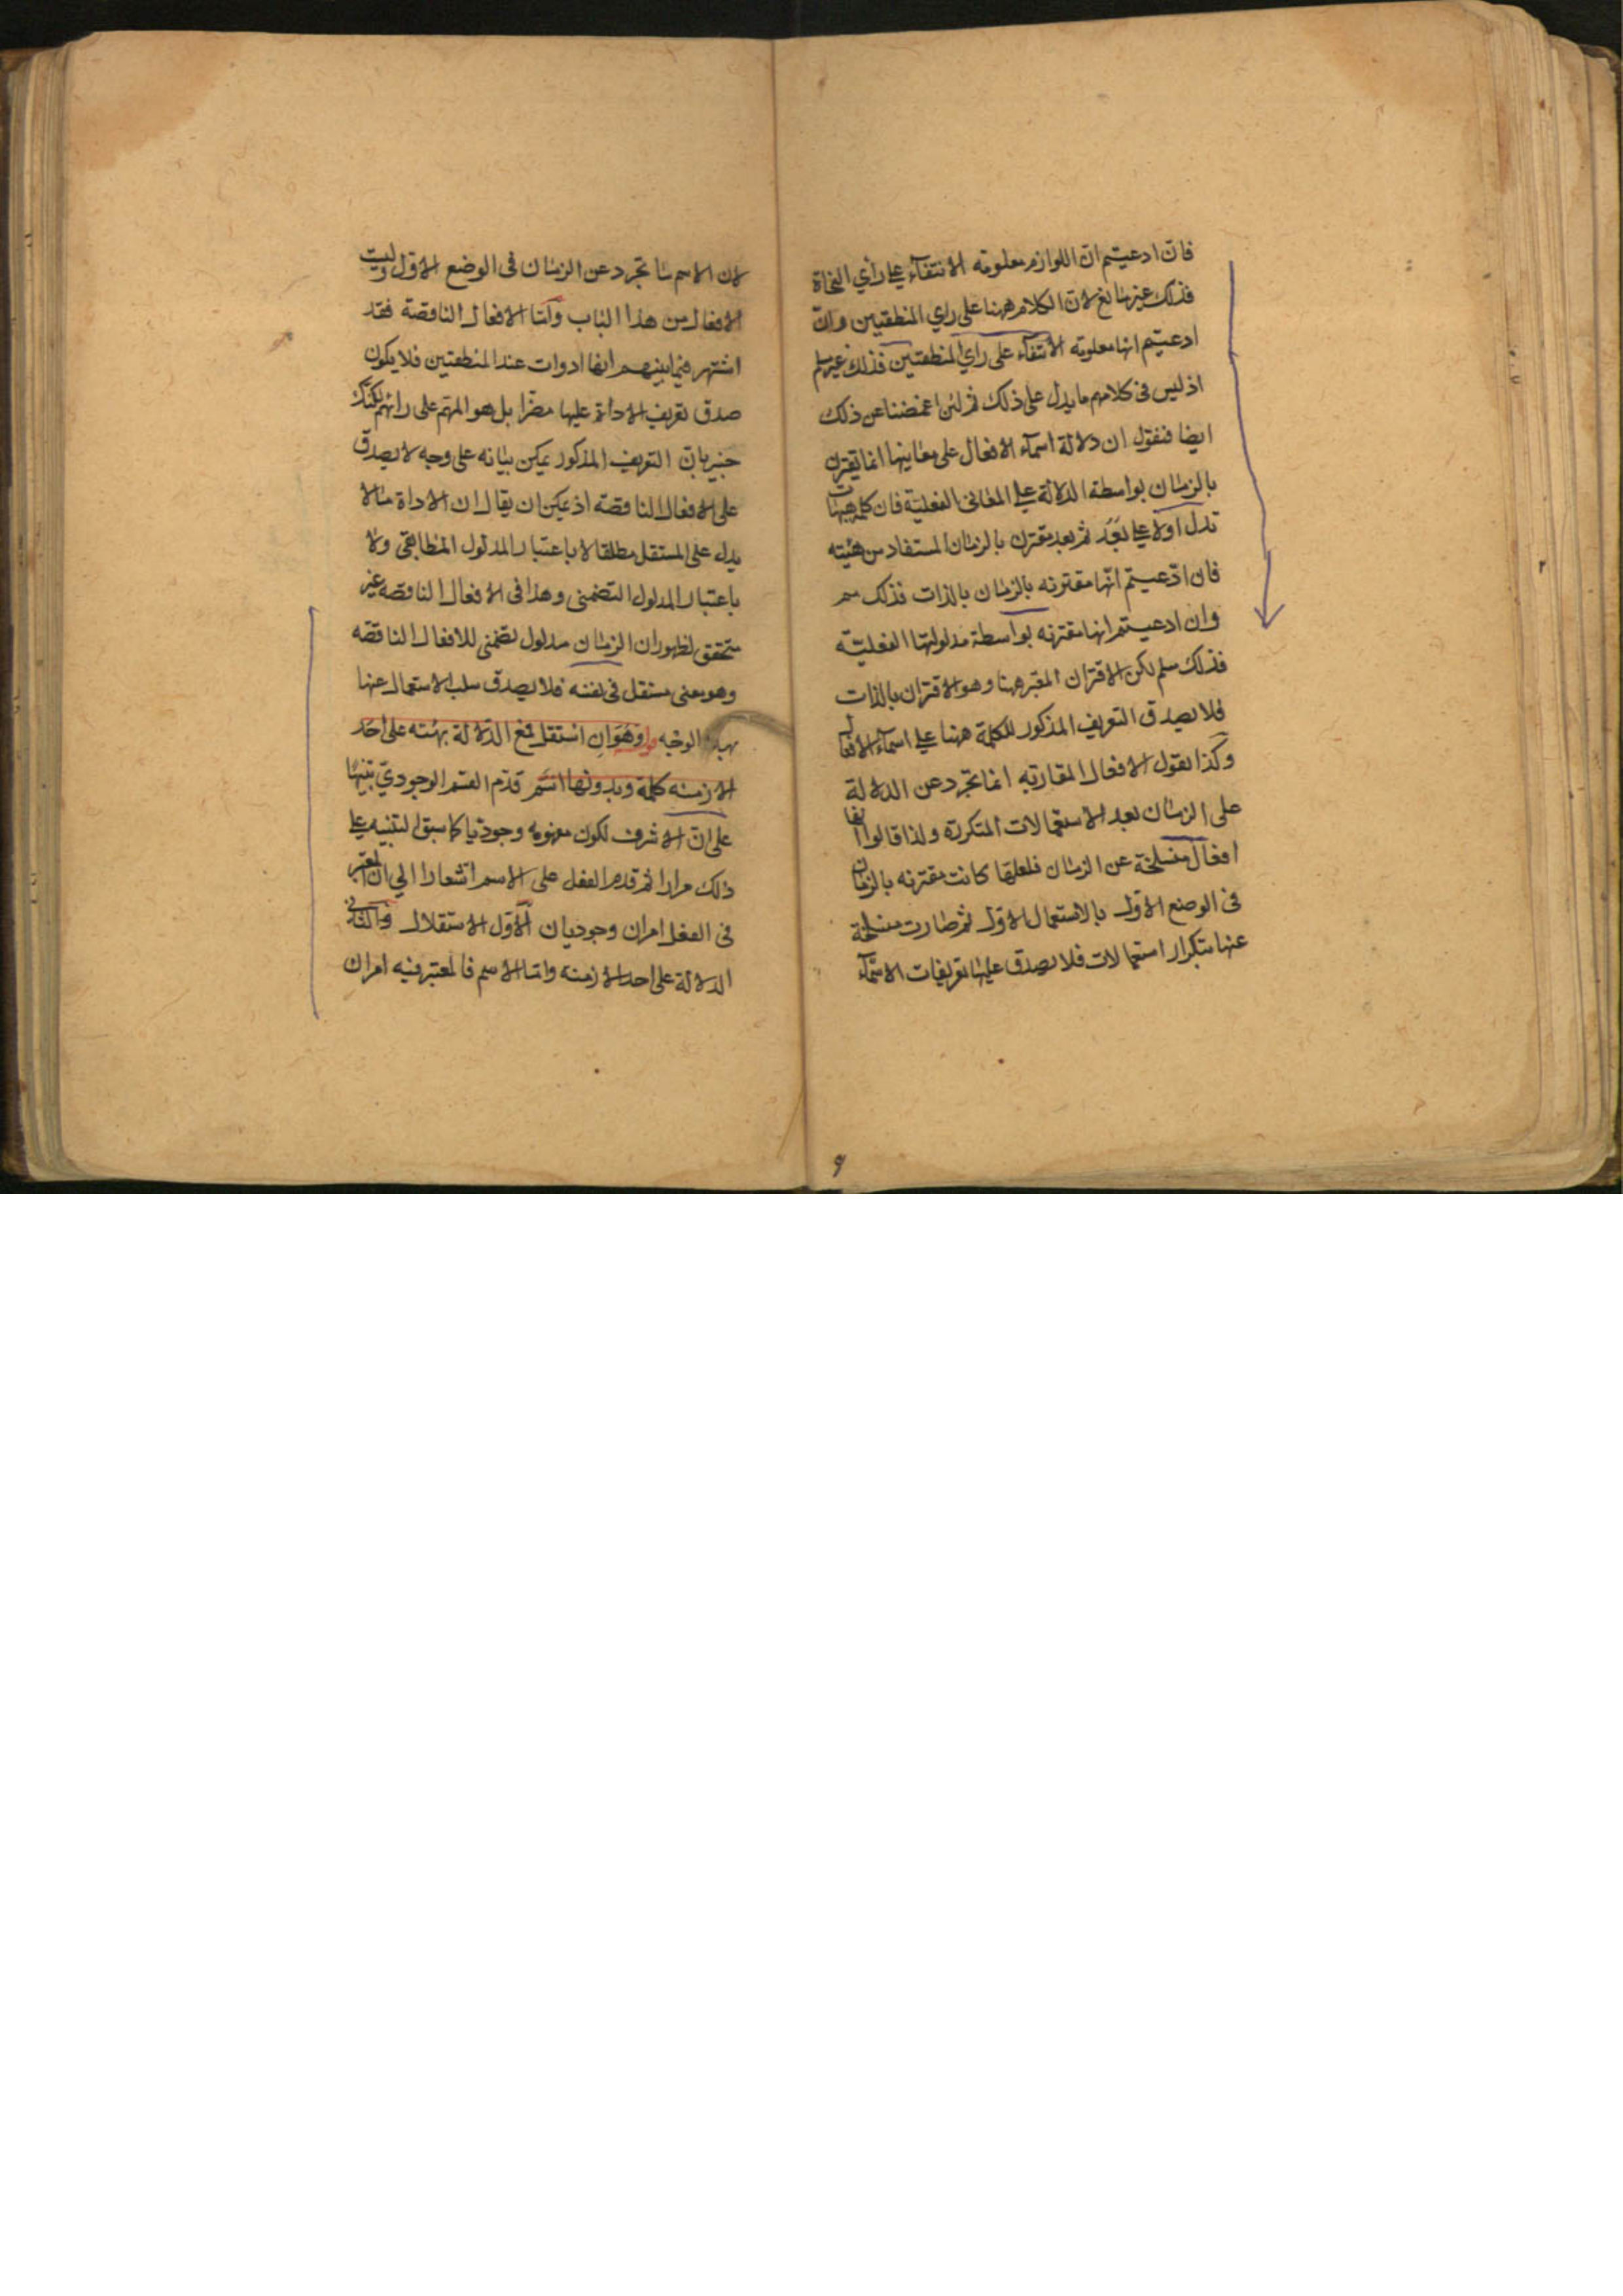 فان ادعيتم ان اللوازم معلومة الانتفاء على رأي النحاة
فذلك غير نافع لان الكلام ههنا على راي المنطقيين وان
ادعيتم انها معلومة الانتفاء على راي المنطقيين فذلك غير مسلم
اذ ليس في كلامهم ما يدل على ذلك ثم لئن اغمضنا عن ذلك
ايضا فنقول ان دلالة اسماء الافعال على معانيها انما تقترن
بالزمان بواسطة الدلالة على المعاني الفعلية فان كلمة هيهات
تدل اولا على بَعُدَ ثم بعد مقترن بالزمان المستفاد من هيئته
فان ادّعيتم انّها مقترنه بالزمان بالذات فذلك مم
وان ادعيتم انها مقترنه بواسطة مدلولتها الفعليّه
فذلك مسلم لكن الاقتران المعتبر ههنا وهو الاقتران بالذات
فلا يصدق التعريف المذكور للكلمة ههنا على اسماء الافعال
وكذا نقول الافعال المقاربه انما تجرد عن الدلالة
على الزمان بعد الاستعمالات المتكررة ولذا قالوا انها
افعال منسلخة عن الزمان فلعلها كانت مقترنه بالزمان
في الوضع الاول بالاستعمال الاوّل ثم صارت منسلخة
عنها بتكرار استعمالات فلا يصدق عليها تعريفات الاسماء
۹
لان الاسم ما تجرد عن الزمان في الوضع الاوّل وليست
الافعال من هذا الباب وأمّا الافعال الناقصة فقد
اشتهر فيما بينهم انها ادوات عند المنطقيين فلا يكون
صدق تعريف الاداة عليها مضرا بل هو المهم على رائهم لكنك
خبير بانّ التعريف المذكور يمكن بيانه على وجه لا يصدق
على الافعال الناقصة اذ يمكن ان يقال ان الاداة ما لا
يدل على المستقل مطلقا لا باعتبار المدلول المطابقي ولا
باعتبار المدلول التضمني وهذا في الافعال الناقصه غير
متحقق لظهور ان الزمان مدلول تضمني للافعال الناقصه
وهو معنى مستقل في نفسه فلا يصدق سلب الاستعمال عنها
بهذا الوجه وهُوَ ان استقل فمع الدّلالة بهيئته على احد
الازمنه كلمة وبدونها اسم قدّم القسم الوجوديّ تنبيها
على انّ الاشرف لكون مفهومه وجوديا كما سبق التنبيه على
ذلك مرارا ثم قدم الفعل على الاسم اشعارا الي ان المعتبر
في الفعل امران وجوديان الأوّل الاستقلال والثاني
الدلالة على احد الازمنة واما الاسم فالمعتبر فيه امران